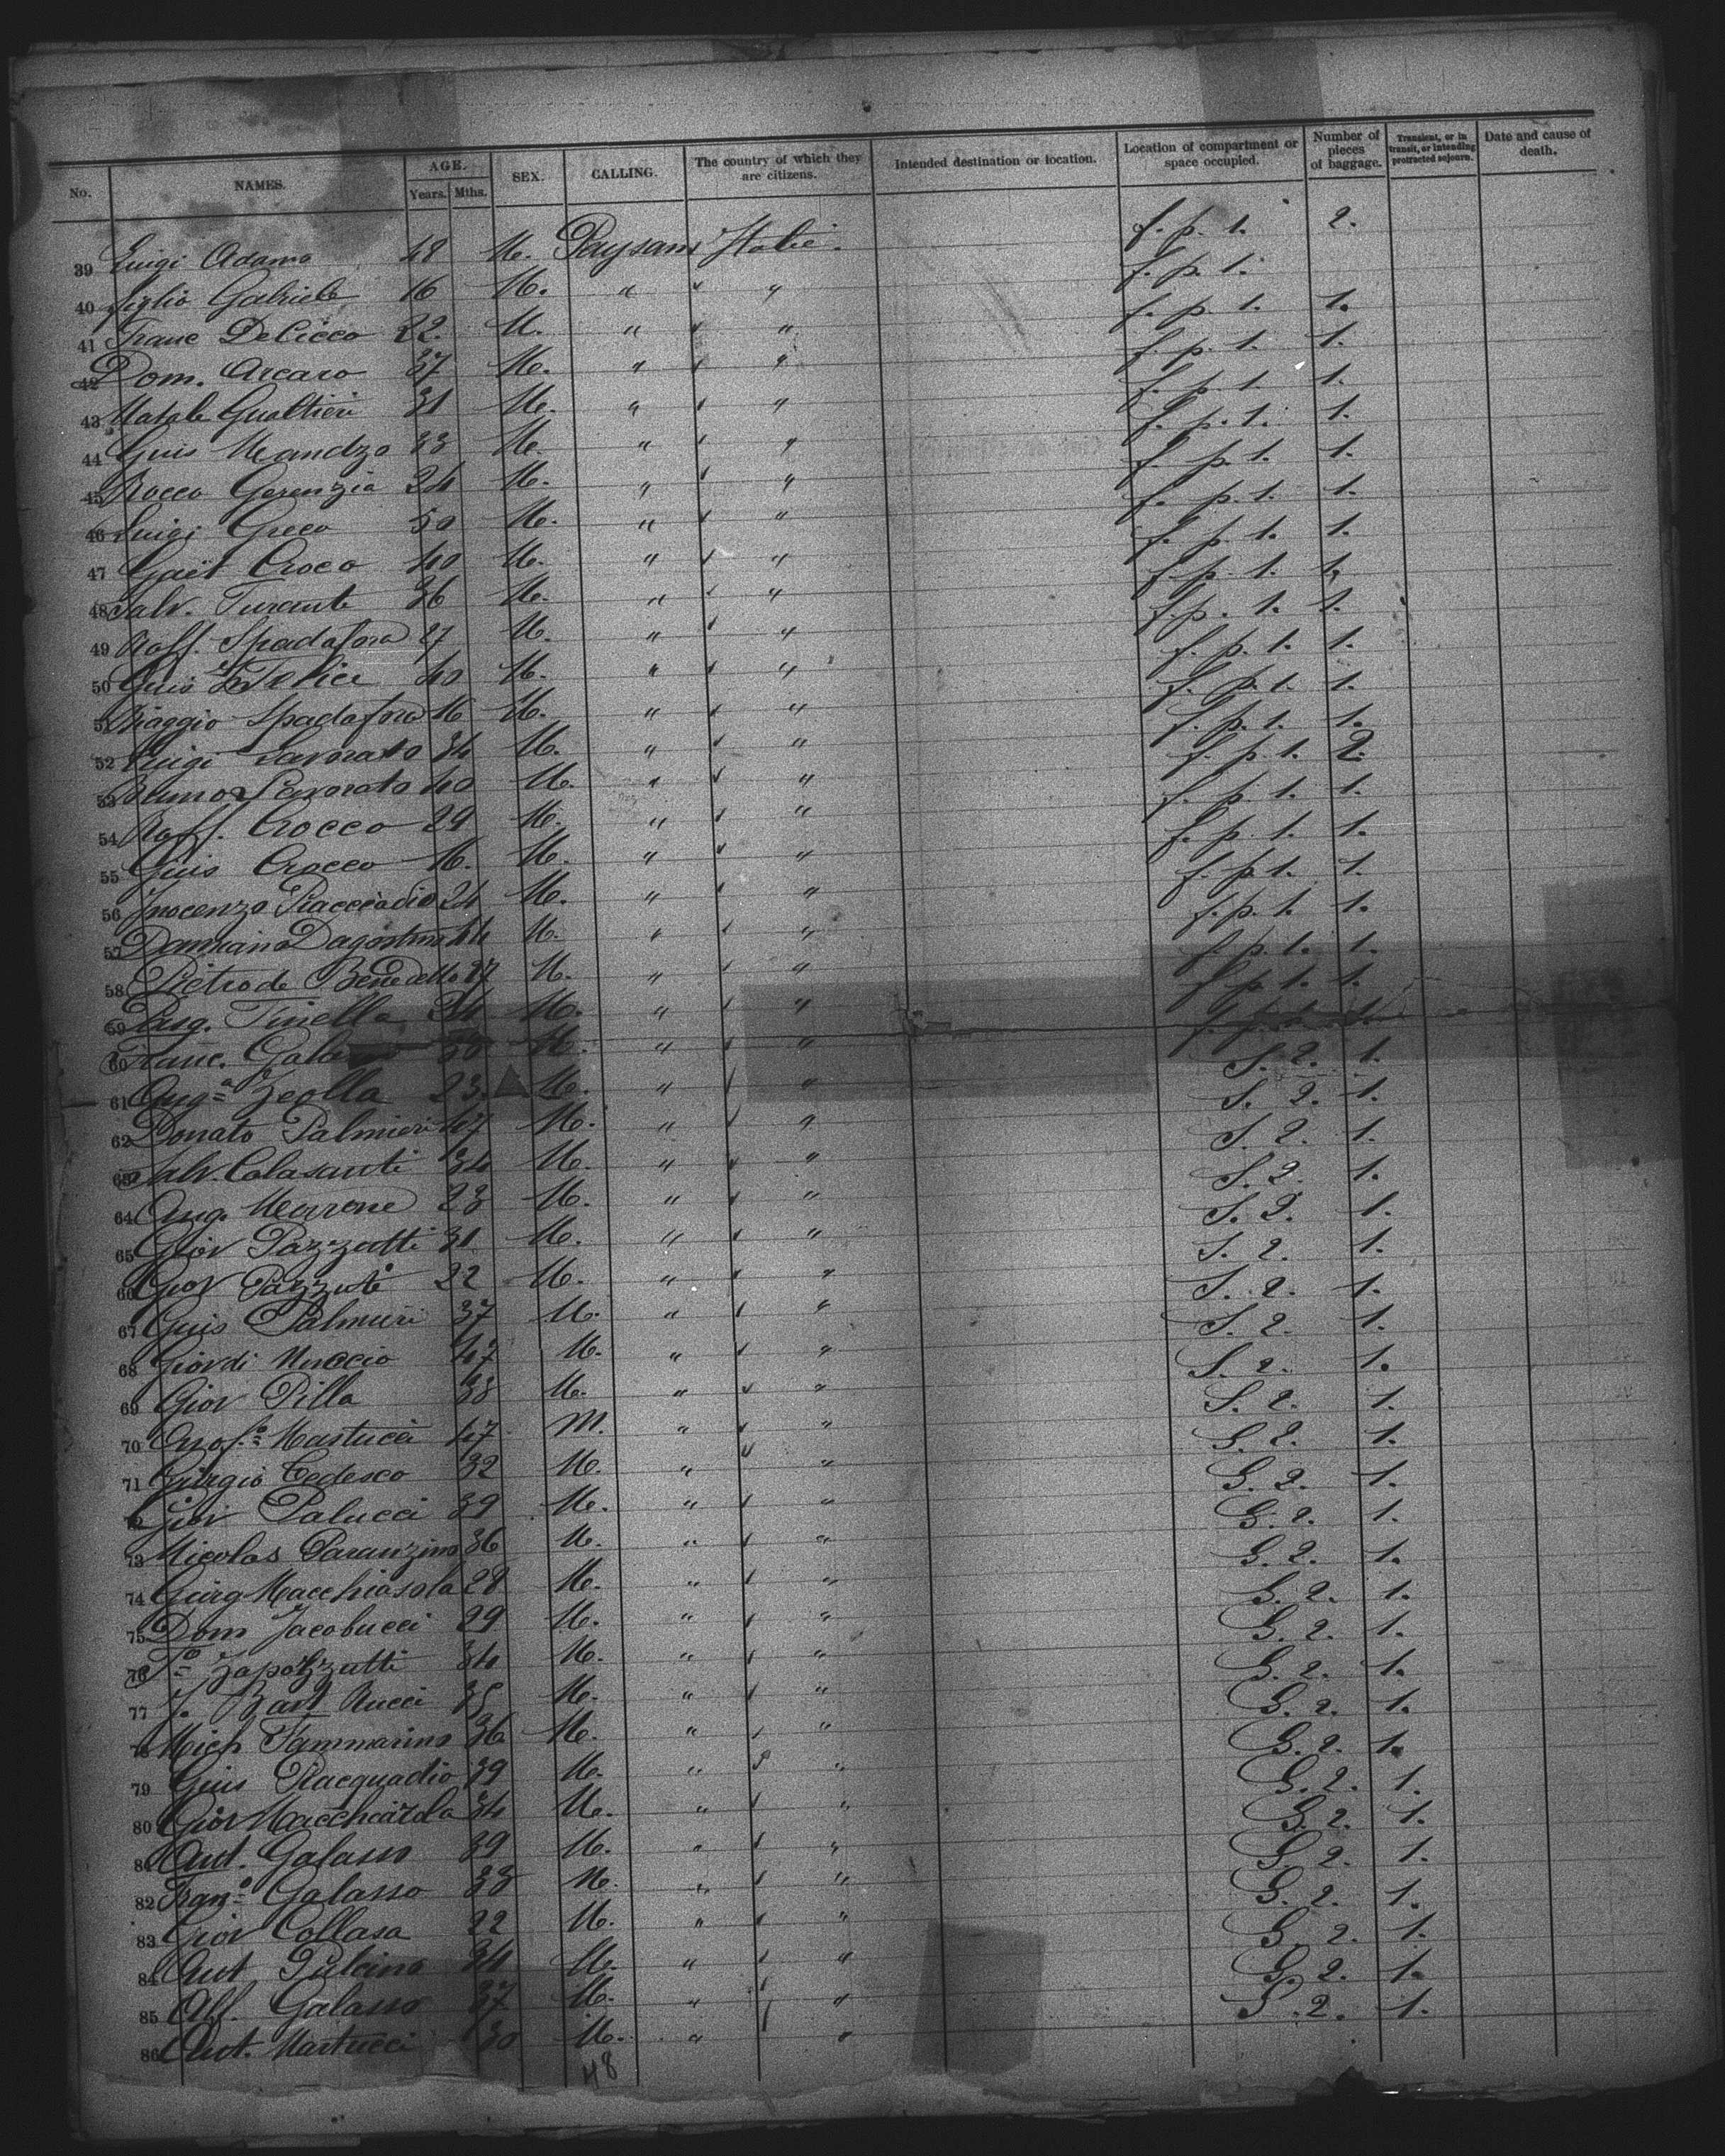 No. NAMES. AGE. Years. Mths. SEX. CALLING. The country of which they are citizens. Intended destination or location. Location of compartment or space occupied. Number of pieces of baggage. Transient, or in transit, or intending protracted sojourn. Date and cause of death.
39 Luigi Adamo 48 M. Paysans Italie. f. p. 1. 2.
40 figlio Gabriele 16 M. " " f. p. 1.
41 Franc DeCicco 22. M. " " f. p. 1. 1.
42 Dom. Arcaro 37 M. " " f. p. 1. 1.
43 Natale Gualtieri 31 M. " " f. p. 1 1.
44 Guis Mandzo 33 M. " " f. p. 1. 1.
45 Rocco Gerenzia 24 M. " " f. p. 1. 1.
46 Luigi Greco 50 M. " " f. p. 1. 1.
47 Gaët Croco 40 M. " " f. p. 1. 1.
48 Salv. Turante 36 M. " " f. p. 1. 1.
49 Raff. Spadafora 27 M. " " f. p. 1. 1.
50 Guis Felice 40 M. " " f. p. 1. 1.
51 Biaggio Spadafora 16 M. " " f. p. 1. 1.
52 Luigi Lavorato 34 M. " " f. p. 1. 1.
53 Bruno Lavorato 40 M. " " f. p. 1. 2.
54 Raff. Crocco 29 M. " " f. p. 1. 1.
55 Guis Crocco 16. M. " " f. p. 1. 1.
56 Inocenzo 24 M. " " f. p. 1. 1.
57 Damiano Dagostino 44 M. " " f. p. 1. 1.
58 Pietro de Benedetto 27 M. " " f. p. 1. 1.
59 Pasq. Tinella 34 M. " " f. p. 1. 1.
60 Franc. 30 M. " " 1.
61 Angª Zeolla 23. M. " " S. 2. 1.
62 Donato Palmieri 47 M. " " S. 2. 1.
63 Salv. Colasanti 34 M. " " S. 2. 1.
64 Ang. Marone 23 M. " " S. 2. 1.
65 Giov Pazzutti 31 M. " " S. 2. 1.
66 Giov Pazzuti 22 M. " " S. 2. 1.
67 Guis Palmuri 37 M. " " S. 2. 1.
68 Giordi Nuccio 47 M. " " S. 2. 1.
69 Giov Pilla 38 M. " " S. 2. 1.
70 Onof.º Mastucci 47 M. " " S. 2. 1.
71 Giorgio Tedesco 32 M. " " G. 2. 1.
72 Giov Palucci 39 M. " " G. 2. 1.
73 Nicolas Paranzino 36 M. " " G. 2. 1.
74 Giorg Macchiasola 28 M. " " G. 2. 1.
75 Dom Jacobucci 29 M. " " G. 2. 1.
76 34 M. " " G. 2. 1.
77 J. Bart Rucci 35 M. " " G. 2. 1.
78 Mich Tammarino 36 M. " " G. 2. 1.
79 Guis Racquadio 39 M. " " G. 2. 1.
80 Giov 34 M. " " G. 2. 1.
81 Ant. Galasso 39 M. " " G. 2. 1.
82 Franº Galasso 33 M. " " G. 2. 1.
83 Giov Collasa 22 M. " " G. 2. 1.
84 Ant Pulcino 34 M. " " G. 2. 1.
85 Alf. Galasso 37 M. " " G. 2. 1.
86 Ant. Martucci 30 M. " " S. 2. 1.
48